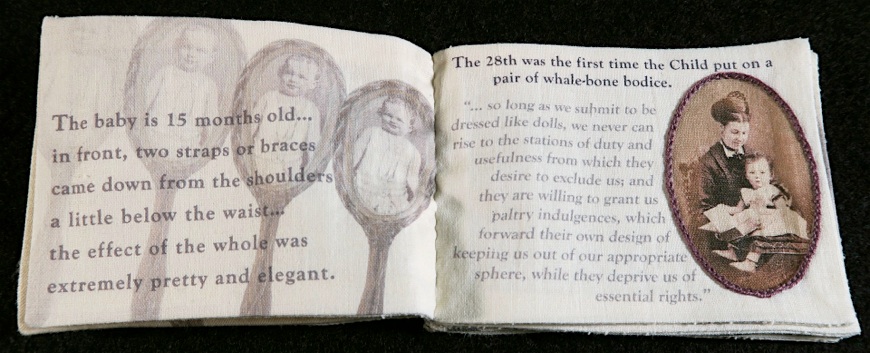 The baby is 15 months old...
in front, two straps or braces
came down from the shoulders
a little below the waist...
the effect of the whole was
extremely pretty and elegant.
The 28th was the first time the Child put on a
pair of whale-bone bodice.
"... so long as we submit to be
dressed like dolls, we never can
rise to the stations of duty and
usefulness from which they
desire to exclude us; and
they are willing to grant us
paltry indulgences, which
forward their own design of
keeping us out of our appropriate
sphere, while they deprive us of
essential rights."